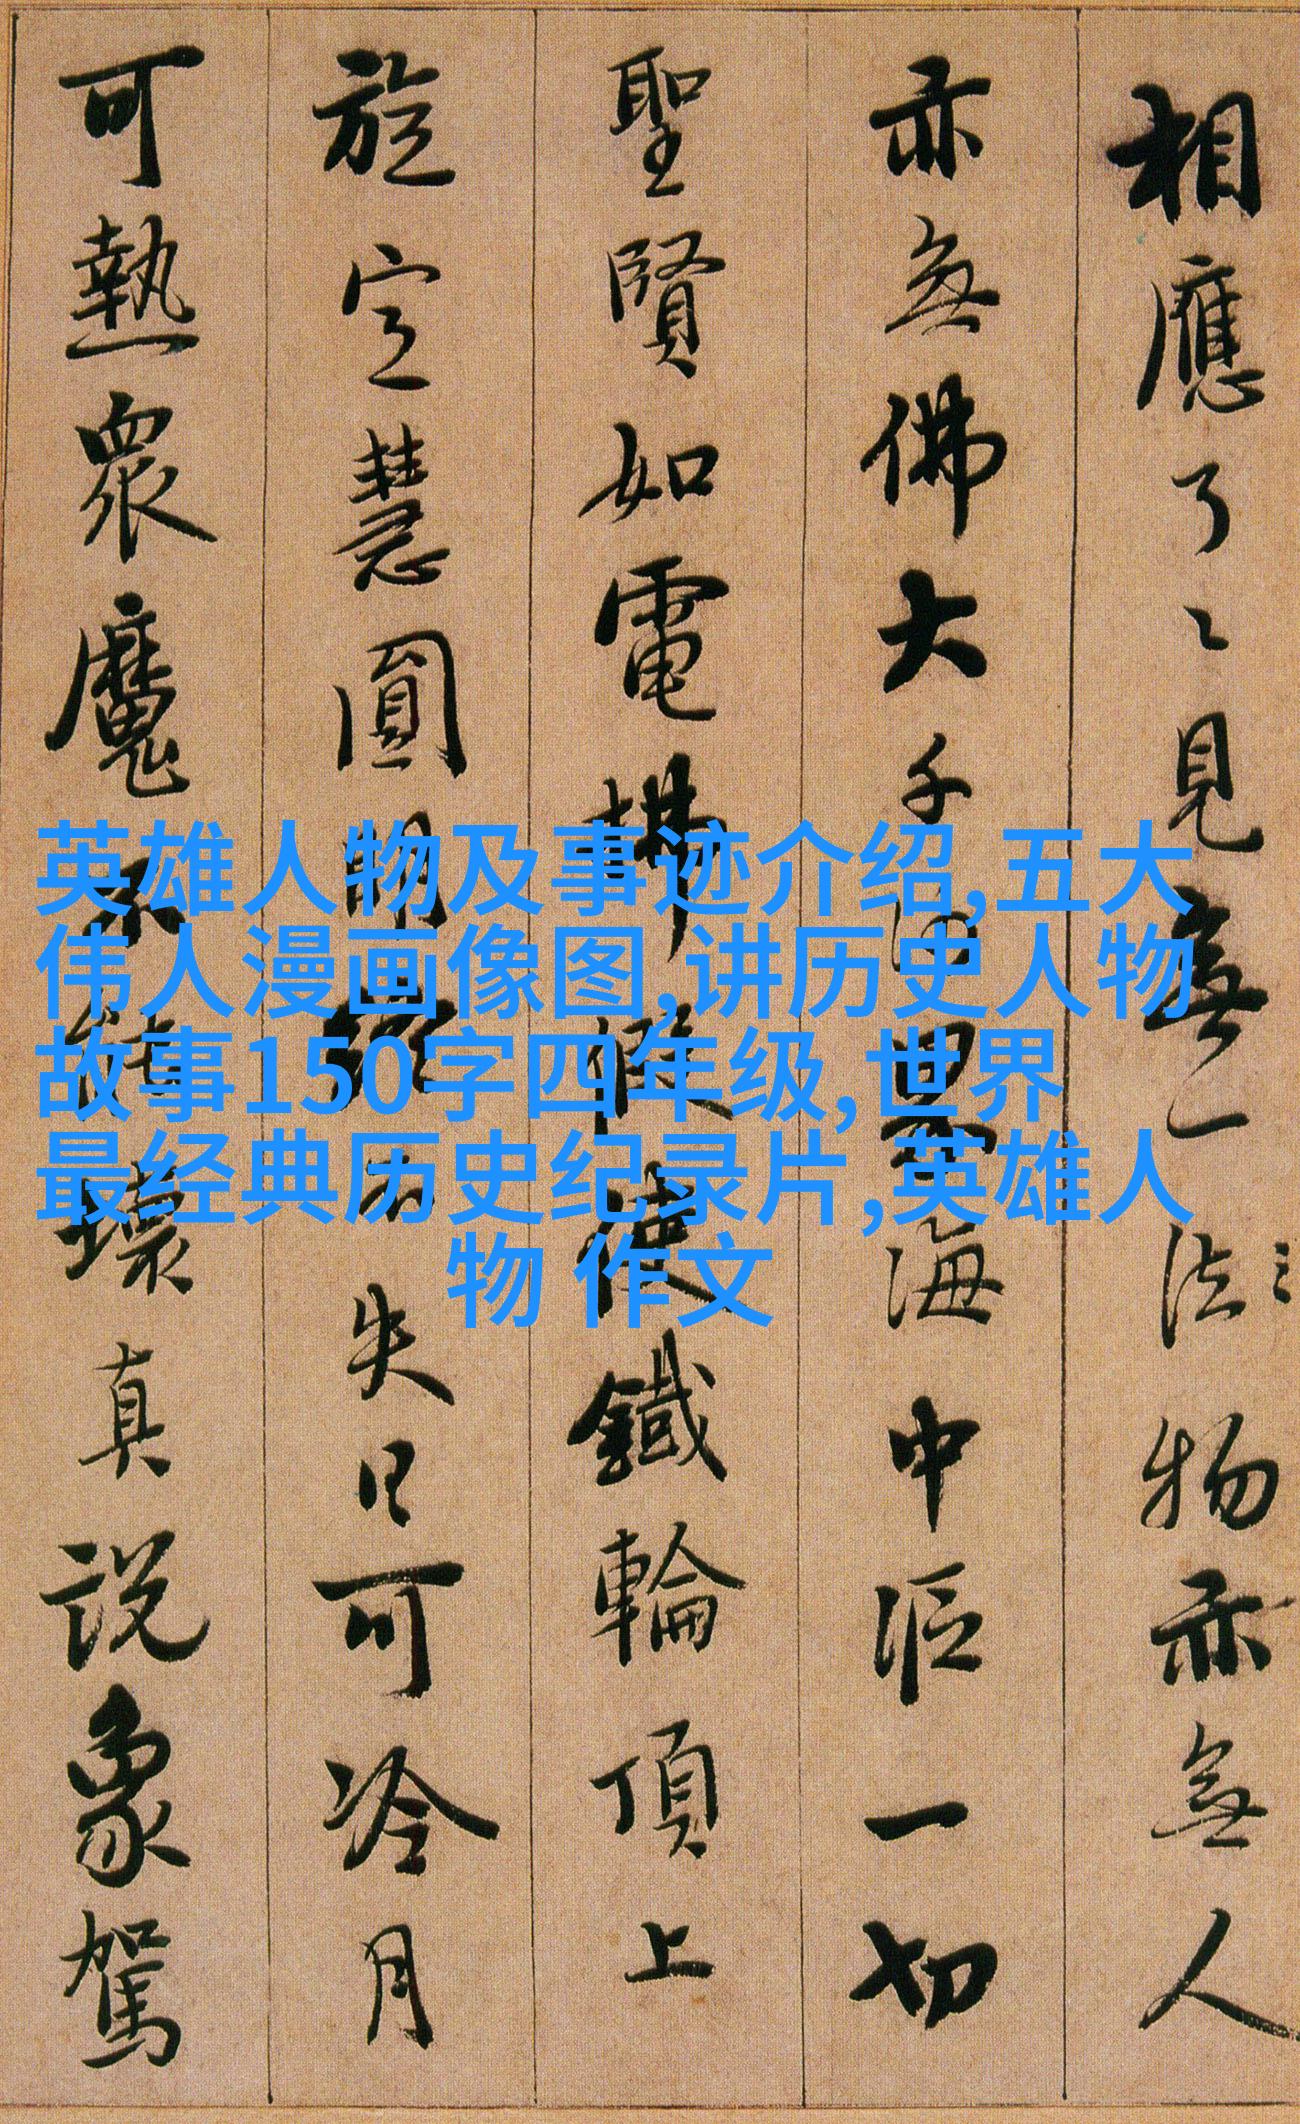 相應了〻見無一法物亦無人
亦無佛大千沙界海中漚一切
聖賢如電拂假使鐵輪頂上
旋定慧圓明終不失日可冷月
可熱眾魔不能壞真説象駕
英雄人物及事迹介绍,五大
伟人漫画像图,讲历史人物
故事150字四年级,世界
最经典历史纪录片,英雄人
物 作文